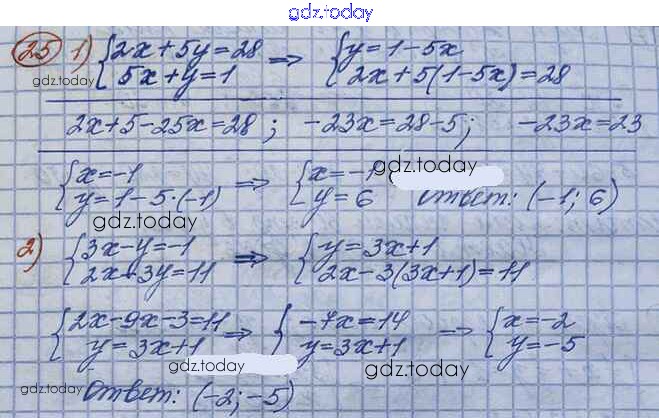 gdz.today
25 1) {2x+5y=28 5x+y=1 => {y=1-5x 2x+5(1-5x)=28
gdz.today
2x+5-25x=28; -23x=28-5; -23x=23
gdz.today
{x=-1 y=1-5·(-1) => {x=-1 y=6 Ответ: (-1; 6)
gdz.today
2) {3x-y=-1 2x-3y=11 => {y=3x+1 2x-3(3x+1)=11
{2x-9x-3=11 y=3x+1 => {-7x=14 y=3x+1 => {x=-2 y=-5
gdz.today gdz.today
gdz.today Ответ: (-2; -5)